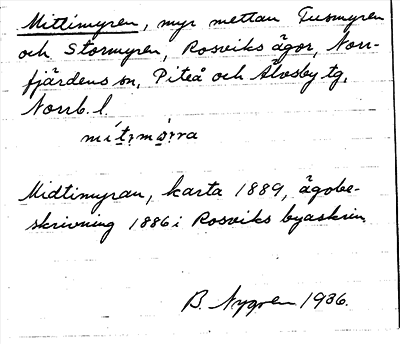 Mittimyren, myr mellan Tusmyren
och Stormyren, Rosviks ägor, Norr-
fjärdens sn, Piteå och Älvsby tg,
Norrb. l.
Midtimyran, karta 1889, ägobe-
skrivning 1886 i Rosviks byaskrin
B. Nygren 1936.